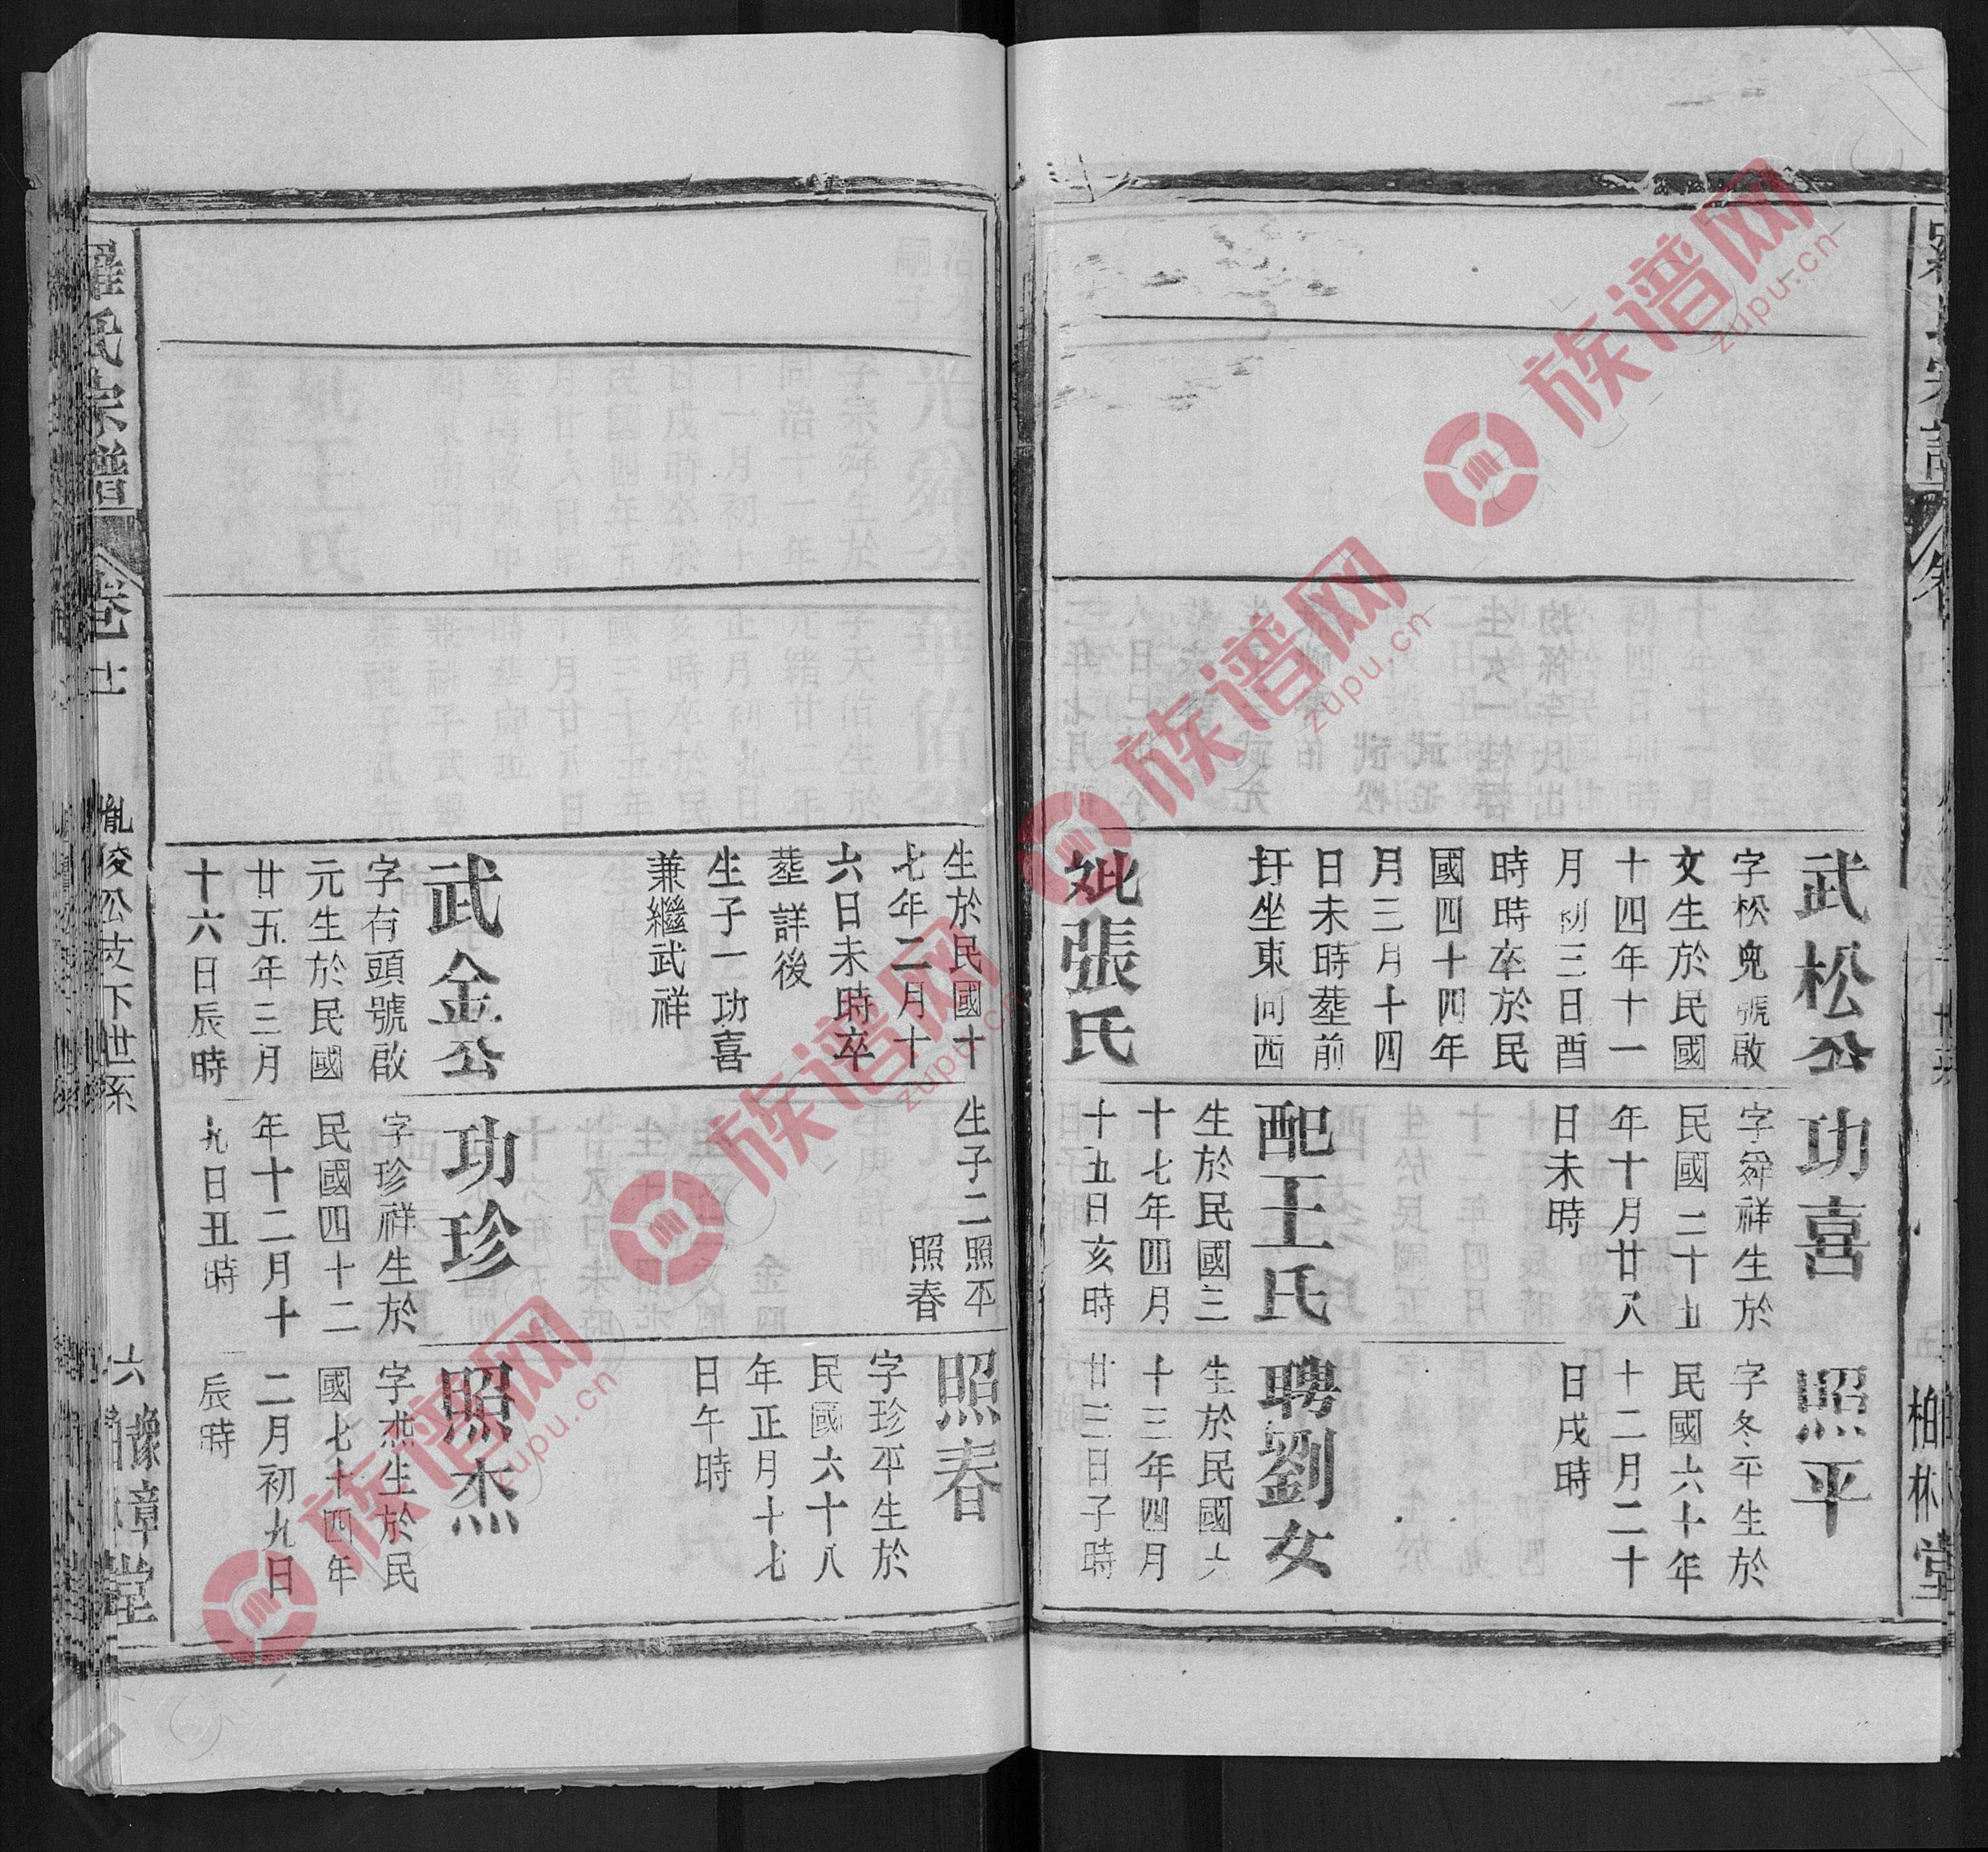 武松公
字松兒號啟
文生於民國
十四年十一
月初三日酉
時時卒於民
國四十四年
月三月十四
日未時塟前
圩坐東向西
妣張氏
功喜
字舜祥生於
民國二十五
年十月廿八
日未時
配王氏
生於民國三
十七年四月
十五日亥時
照平
字冬平生於
民國六十年
十二月二十
日戌時
聘劉女
生於民國六
十三年四月
廿三日子時
柏林堂
生於民國十
七年二月十
六日未時卒
塟詳後
生子一功喜
兼繼武祥
武金公
字有頭號啟
元生於民國
廿五年三月
十六日辰時
生子二照平
照春
功珍
字珍祥生於
民國四十二
年十二月十
九日丑時
照春
字珍平生於
民國六十八
年正月十七
日午時
照杰
字杰生於民
國七十四年
二月初九日
辰時
羅氏宗譜
卷十
胤俊公支下世系
六
豫章堂
族谱网
zupu.cn
族谱网
zupu.cn
族谱网
zupu.cn
族谱网
zupu.cn